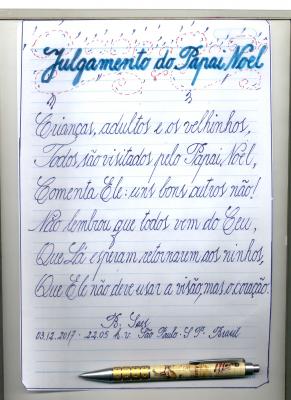 Julgamento do Papai Noel
Crianças, adultos e os velhinhos,
Todos são visitados pelo Papai Noel,
Comenta Ele: uns bons, outros não!
Não lembrou que todos vem do Ceu,
Que Lá esperam retornarem aos ninhos,
Que Ele não deve usar a visão, mas o coração.
03.12.2017 - 22.05 h.v. São Paulo - S P. Brasil